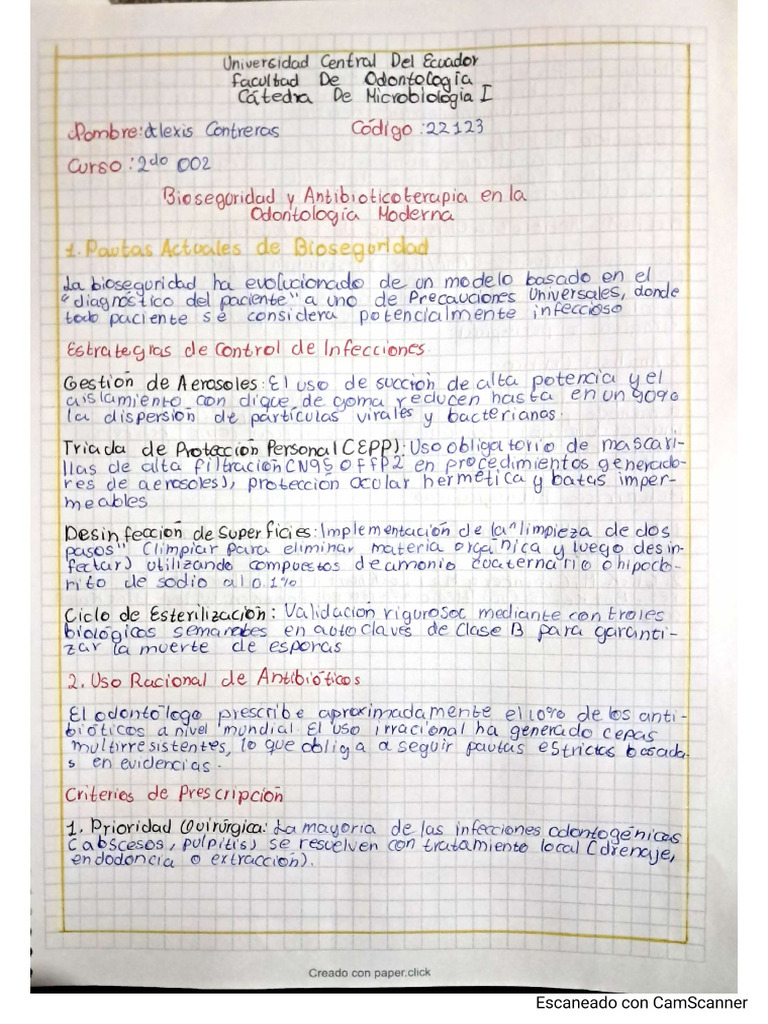 Universidad Central Del Ecuador
Facultad De Odontología
Cátedra De Microbiología I
Nombre: Alexis Contreras Código: 22123
Curso: 2do 002
Bioseguridad y Antibioticoterapia en la
Odontología Moderna
1. Pautas Actuales de Bioseguridad
La bioseguridad ha evolucionado de un modelo basado en el
"diagnóstico del paciente" a uno de Precauciones Universales, donde
todo paciente se considera potencialmente infeccioso
Estrategias de Control de Infecciones
Gestión de Aerosoles: El uso de succión de alta potencia y el
aislamiento con dique de goma reducen hasta en un 90%
la dispersión de partículas virales y bacterianas.
Triada de Protección Personal (EPP): Uso obligatorio de mascari-
llas de alta filtración (N95 o FFP2 en procedimientos generado-
res de aerosoles), protección ocular hermética y batas imper-
meables
Desinfección de Superficies: Implementación de la "limpieza de dos
pasos" (limpiar para eliminar materia orgánica y luego desin-
fectar) utilizando compuestos de amonio cuaternario o hipoclo-
rito de sodio al 0.1%
Ciclo de Esterilización: Validación rigurosa mediante controles
biológicos semanales en autoclaves de Clase B para garanti-
zar la muerte de esporas
2. Uso Racional de Antibióticos
El odontólogo prescribe aproximadamente el 10% de los anti-
bióticos a nivel mundial. El uso irracional ha generado cepas
multirresistentes, lo que obliga a seguir pautas estrictas basada-
s en evidencias.
Criterios de Prescripción
1. Prioridad Quirúrgica: La mayoría de las infecciones odontogénicas
(abscesos, pulpitis) se resuelven con tratamiento local (drenaje,
endodoncia o extracción).
Creado con paper.click
Escaneado con CamScanner